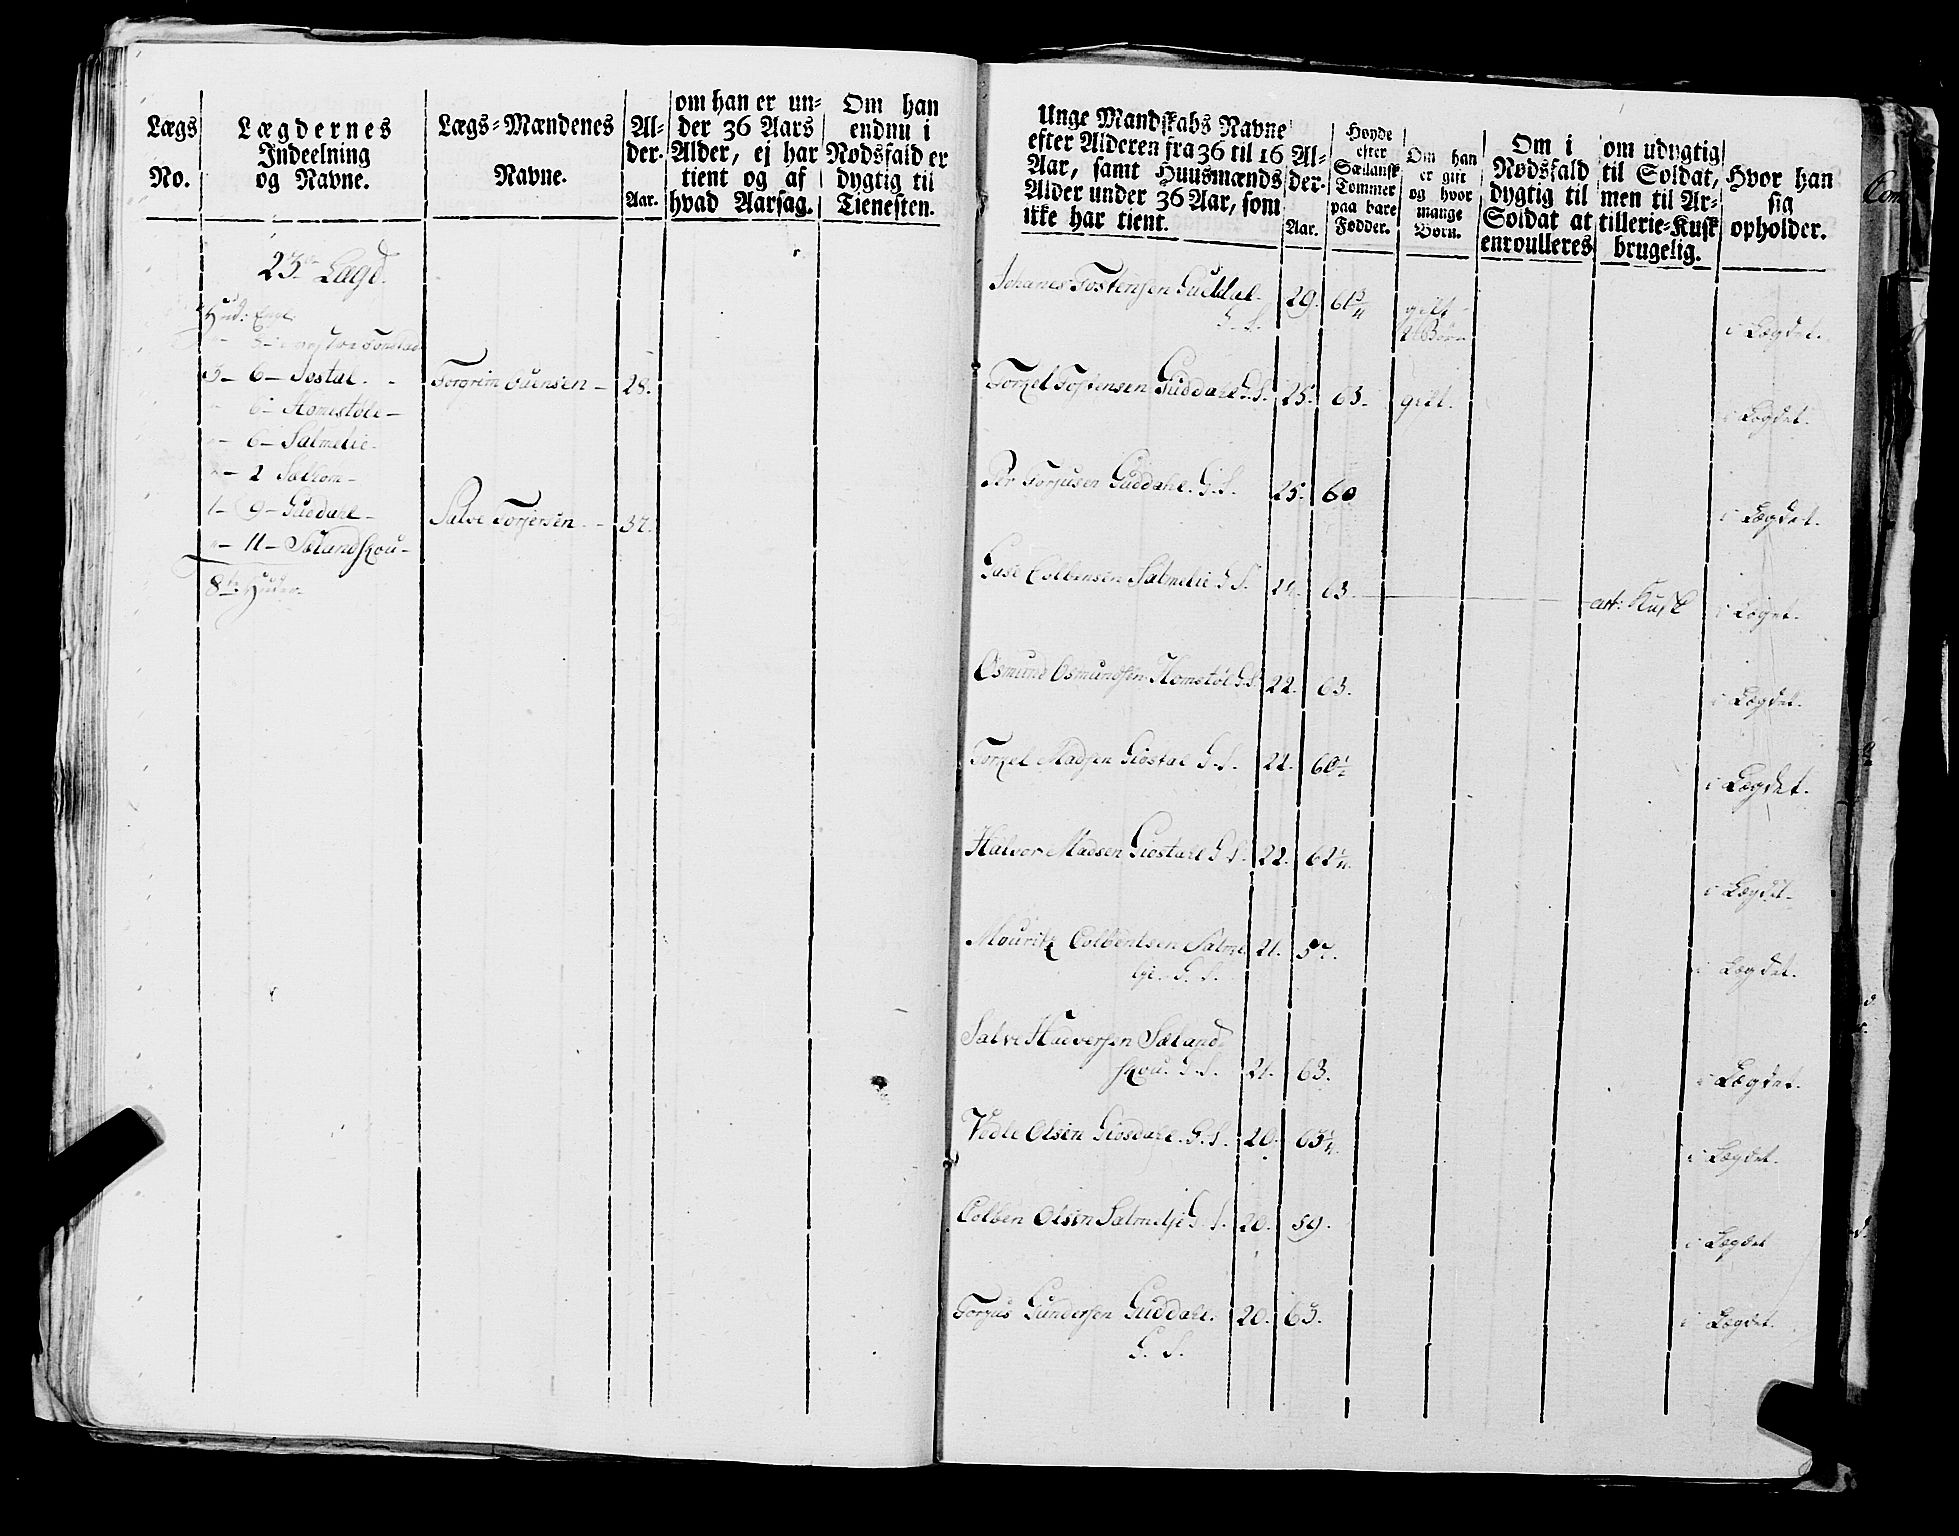 Lægs
No.
Lægdernes
Indeelning
og Navne.
Lægs-Mændenes
Navne.
Al-
der.
Aar.
om han er un-
der 36 Aars
Alder, ej har
tient og af
hvad Aarsag.
Om han
endnu i
Nødsfald er
dygtig til
Tienesten.
23 Lægd.
Hud: Engl.
3 - 6 - Josdal. - Torgrim Svensen - 28.
6 - Homestöle -
6 - Salmelie -
2
1 - 9 - Guddahl - Salve Torjersen - 37.
- 11 - Sælandskou -
8 Huder
Unge Mandskabs Navne
efter Alderen fra 36 til 16
Aar, samt Huusmænds
Alder under 36 Aar, som
ikke har tient.
Al-
der.
Aar.
Høyde
efter
Sællansk
Tommer
paa bare
Fødder.
Om han
er gift
og hvor
mange
Børn.
Om i
Nødsfald
dygtig til
Soldat at
enroulleres
om udygtig
til Soldat,
men til Ar-
tillerie-Kusk
brugelig.
Hvor han
sig
opholder.
Johanes Tostensen Guddal. 29. 61 3/4 gift
G. S. Børn i Lægdet.
Torkel Tostensen Guddahl G. S. 25. 63. gift. i Lægdet.
Per Torjusen Guddahl. G. S. 25. 60 i Lægdet.
Colbensen Salmelie G. S. 63. art: Kusk i Lægdet.
Osmund Osmundsen Homstøl G. S. 22. 63. i Lægdet.
Torkel Madsen Giosdal G. S. 22. 60 1/2 i Lægdet.
Halvor Madsen Giosdahl G. S. 22. 62 1/4. i Lægdet.
Mouritz Colbentsen Salme 21. 57. i Lægdet.
lje. G. S.
Salve Hadversen Sæland
skou. G. S. 21. 63. i Lægdet.
Vedle Olsen Giosdahl. G. S. 20. 63 1/4. i Lægdet.
Colben Olsen Salmelje G. S. 20. 59. i Lægdet
Torjus Gundersen Guddahl. 20. 63. i Lægdet.
G. S.